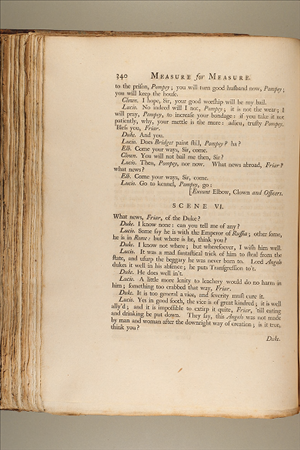 340 MEASURE for MEASURE.
to the prison, Pompey; you will turn good husband now, Pompey;
you will keep the house.
Clown. I hope, Sir, your good worship will be my bail.
Lucio. No indeed will I not, Pompey; it is not the wear; I
will pray, Pompey, to increase your bondage: if you take it not
patiently, why, your mettle is the more: adieu, trusty Pompey.
'Bless you, Friar.
Duke. And you.
Lucio. Does Bridget paint still, Pompey? ha?
Elb. Come your ways, Sir, come.
Clown. You will not bail me then, Sir?
Lucio. Then, Pompey, nor now. What news abroad, Friar?
what news?
Elb. Come your ways, Sir, come.
Lucio. Go to kennel, Pompey, go:
[Exeunt Elbow, Clown and Officers.
SCENE VI.
What news, Friar, of the Duke?
Duke. I know none: can you tell me of any?
Lucio. Some say he is with the Emperor of Russia; other some,
he is in Rome: but where is he, think you?
Duke. I know not where; but wheresoever, I wish him well.
Lucio. It was a mad fantastical trick of him to steal from the
state, and usurp the beggary he was never born to. Lord Angelo
dukes it well in his absence; he puts Transgression to't.
Duke. He does well in't.
Lucio. A little more lenity to leachery would do no harm in
him; something too crabbed that way, Friar.
Duke. It is too general a vice, and severity must cure it.
Lucio. Yes in good sooth, the vice is of great kindred; it is well
ally'd; and it is impossible to extirp it quite, Friar, 'till eating
and drinking be put down. They say, this Angelo was not made
by man and woman after the downright way of creation; is it true,
think you?
Duke.